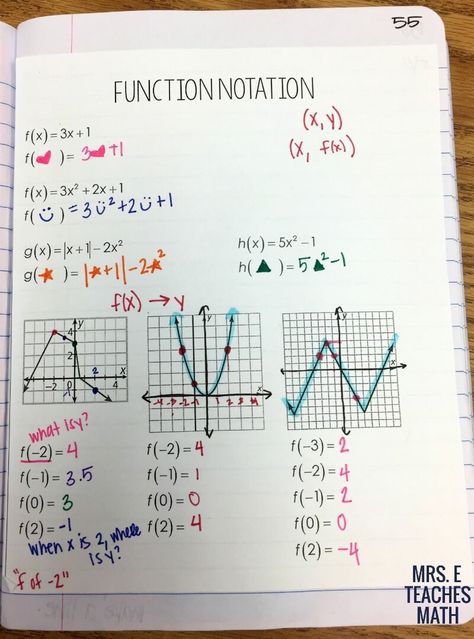 55
FUNCTION NOTATION
f(x) = 3x + 1
f(♥) = 3♥+1
(x, y)
(x, f(x))
f(x) = 3x² + 2x + 1
f(☺) = 3☺²+2☺+1
g(x) = |x + 1| – 2x²
g(★) = |★+1|-2★²
h(x) = 5x² – 1
h(▲) = 5▲²-1
f(x) → y
y
4
2
-2
0
2
4
x
-1
y
x
-4 -3 -2 -1 1 2 3 4
y
x
what is y?
f(–2) = 4
f(–1) = 3.5
f(0) = 3
f(2) = -1
when x is 2, where
is y?
"f of -2"
f(–2) = 4
f(–1) = 1
f(0) = 0
f(2) = 4
f(–3) = 2
f(–2) = 4
f(–1) = 2
f(0) = 0
f(2) = -4
MRS. E
TEACHES
MATH